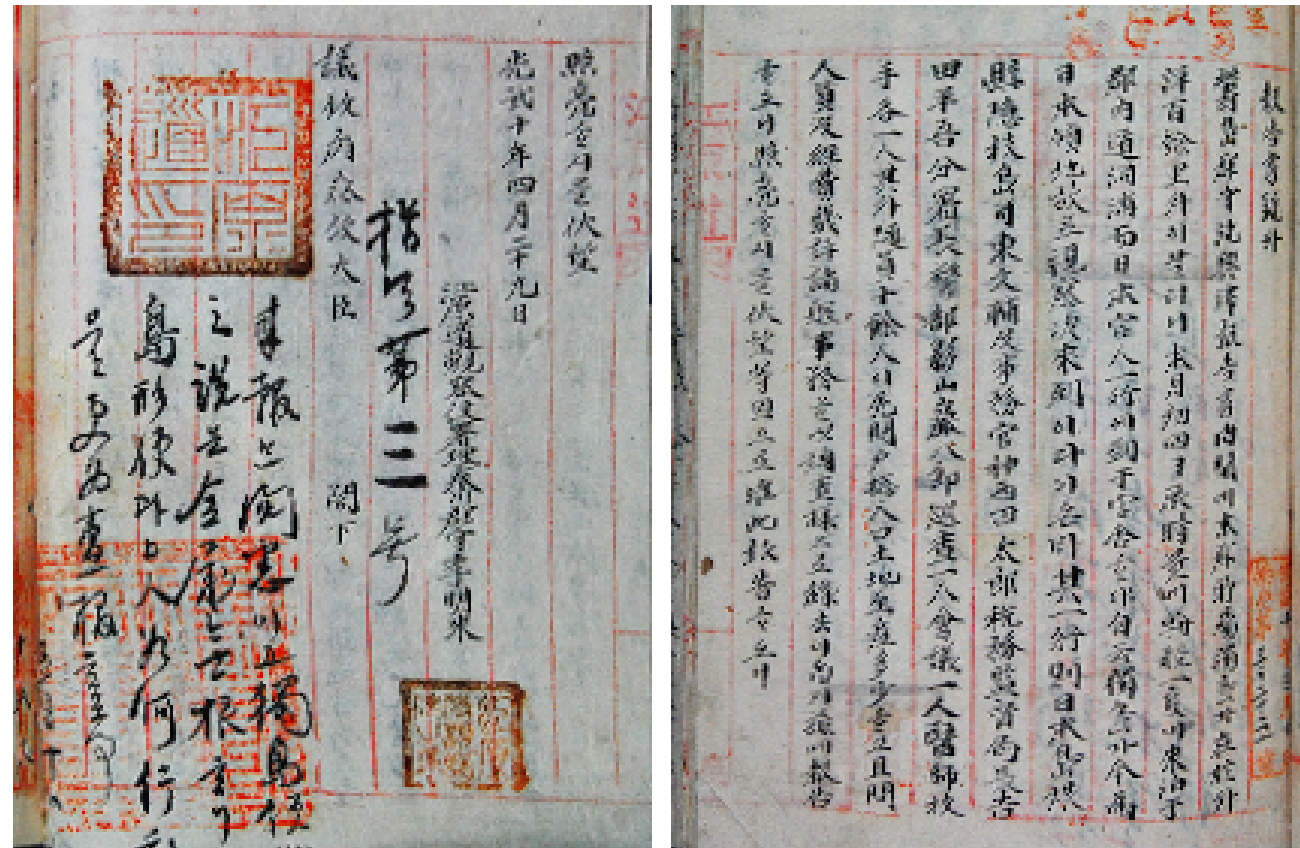 報告書號外
鬱島郡守沈興澤報告書內開에本郡所屬獨島가在於外
洋百餘里外이살더니本月初四日辰時量에輪船一隻이來泊于
郡內道洞浦而日本官人一行이到于官舍ᄒᆞ야自云獨島가今爲
日本領地故로視察次來到이다이온바其一行則日本島根
縣隱技島司東文輔及事務官神西田太郎稅務監督局長吉
田平吾分署長警部影山巖八郎巡査一人會議一人醫師技
手各一人其外隨員十餘人이先問戶摠人口土地生産多少ᄒᆞ고且問
人員及經費幾許諸般事務을以調査樣으로錄去이ᄋᆞᆸ기玆에報告
ᄒᆞ오니照亮ᄒᆞ시믈伏望等因으로准此報告ᄒᆞ오니
照亮ᄒᆞ시믈伏望
光武十年四月二十九日
江原道觀察使署理春川郡守李明來
指令第三号
議政府參政大臣 閣下
來報는閱悉이고獨島領地
之說은全屬無根ᄒᆞ나
島形便과日人如何行動
을更爲査報ᄒᆞᆯ事